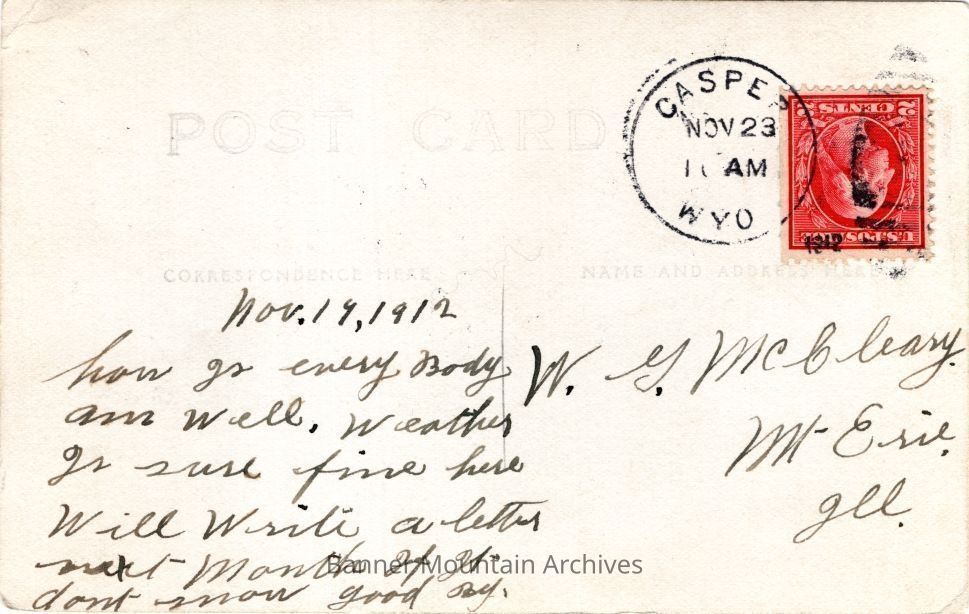 POST CARD
CASPER
NOV 23
AM
WYO
2 CENTS 2
U.S. POSTAGE
1912
CORRESPONDENCE HERE
NAME AND ADDRESS HERE
Nov. 19, 1912
how Is every Body
am Well. Weather
Is sure fine here
Will Write a letter
next Month If It
dont snow good By.
W. G. McCleary.
Mt Erie.
Ill.
Banner Mountain Archives